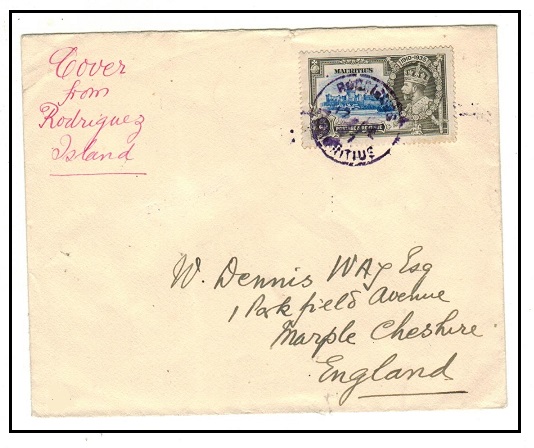 Cover
from
Rodriguez
Island
1910-1935
MAURITIUS
POSTAGE & REVENUE
RODRIGUES
MAURITIUS
W. Dennis WAY Esq
1 Parkfield Avenue
Marple Cheshire
England